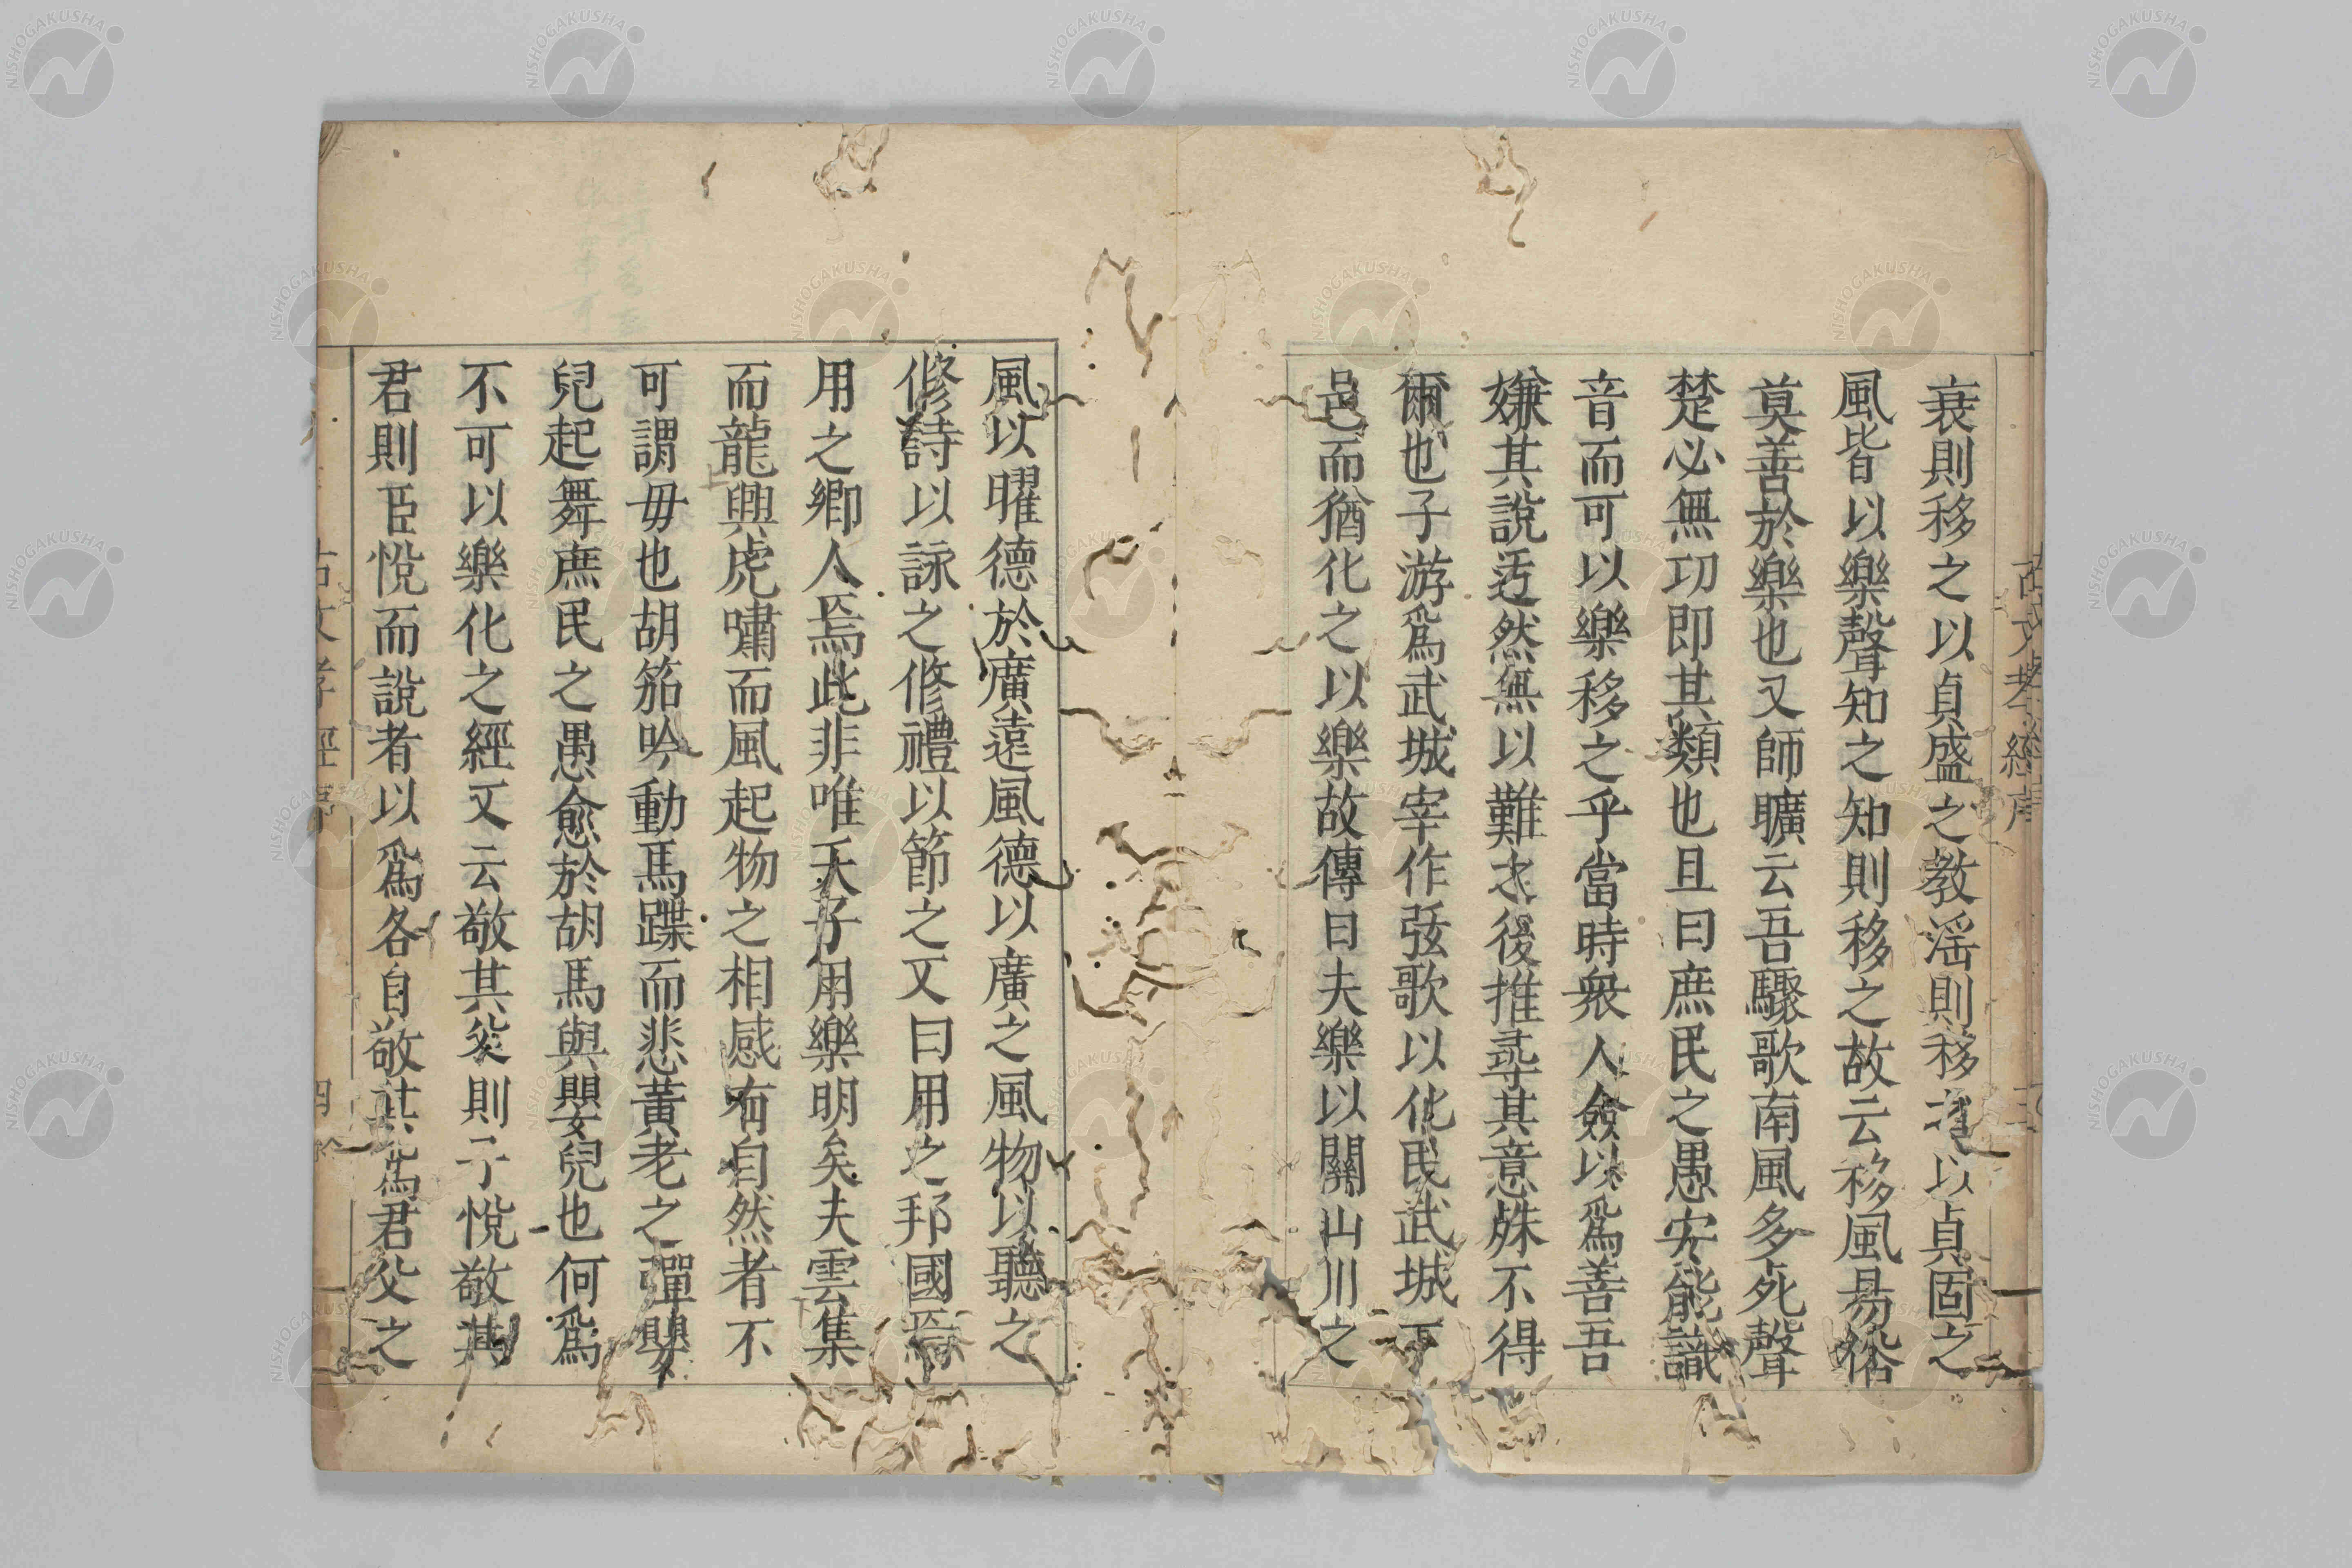 古文孝經序
三
衰則移之以貞盛之教滛則移之以貞固之
風皆以樂聲知之知則移之故云移風易俗
莫善於樂也又師曠云吾驟歌南風多死聲
楚必無功即其類也且曰庶民之愚安能識
音而可以樂移之乎當時衆人僉以爲善吾
嫌其說迃然無以難之後推尋其意殊不得
爾也子游爲武城宰作弦歌以化民武城下
邑而猶化之以樂故傳曰夫樂以關山川之
風以曜德於廣遠風德以廣之風物以聽之
修詩以詠之修禮以節之又曰用之邦國焉
用之鄉人焉此非唯天子用樂明矣夫雲集
而龍興虎嘯而風起物之相感有自然者不
可謂毋也胡笳吟動馬蹀而悲黃老之彈嬰
兒起舞庶民之愚愈於胡馬與嬰兒也何爲
不可以樂化之經又云敬其父則子悅敬其
君則臣悅而說者以爲各自敬其爲君父之
古文孝經序
四
NISHOGAKUSHA